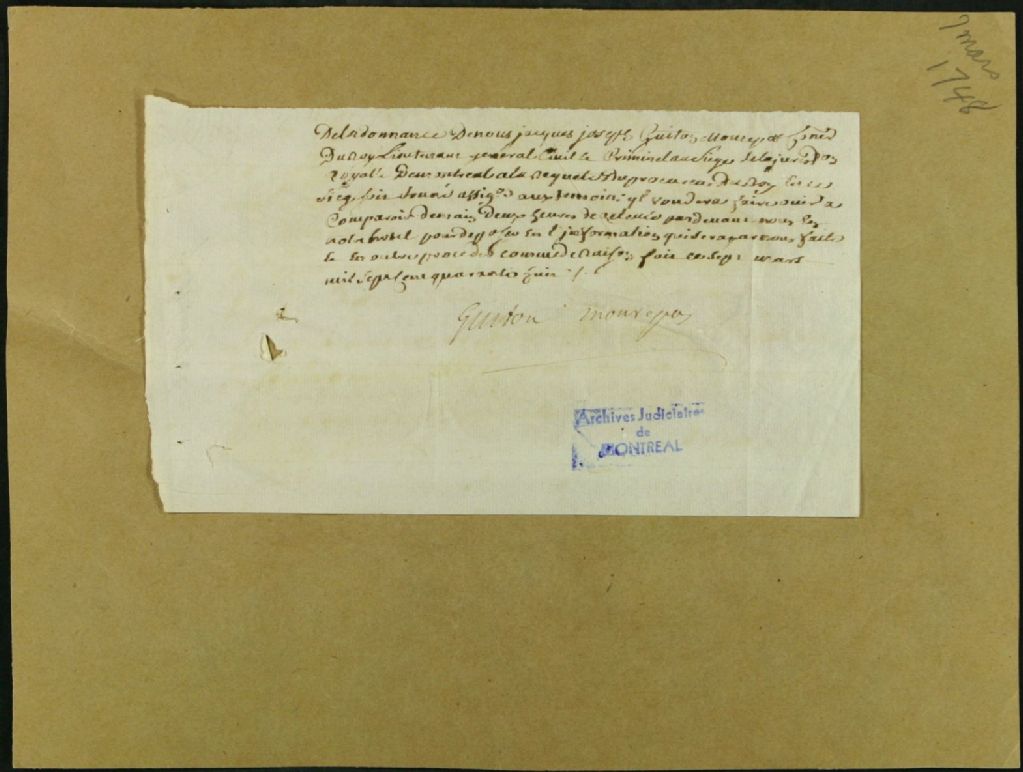 7 mars
1748
De Lordonnance De nous jacques joseph Guiton Monrepos Coner
Du Roy Lieutenant general Civil & Criminel au Siege de la jurisdon
royalle De montreal a la requeste du procureur du Roy En ce
siege soit donné assigon aux temoins ql voudra faire ouir a
Comparoir demain Deux heures de relevée pardevant nous En
notre hotel pour deposer En l'information qui sera par nous faite
& En outre proceder comme de raison fait ce sept mars
mil sept cent quarante huit /.
Guiton monrepos
Archives Judiciaires
de
MONTREAL